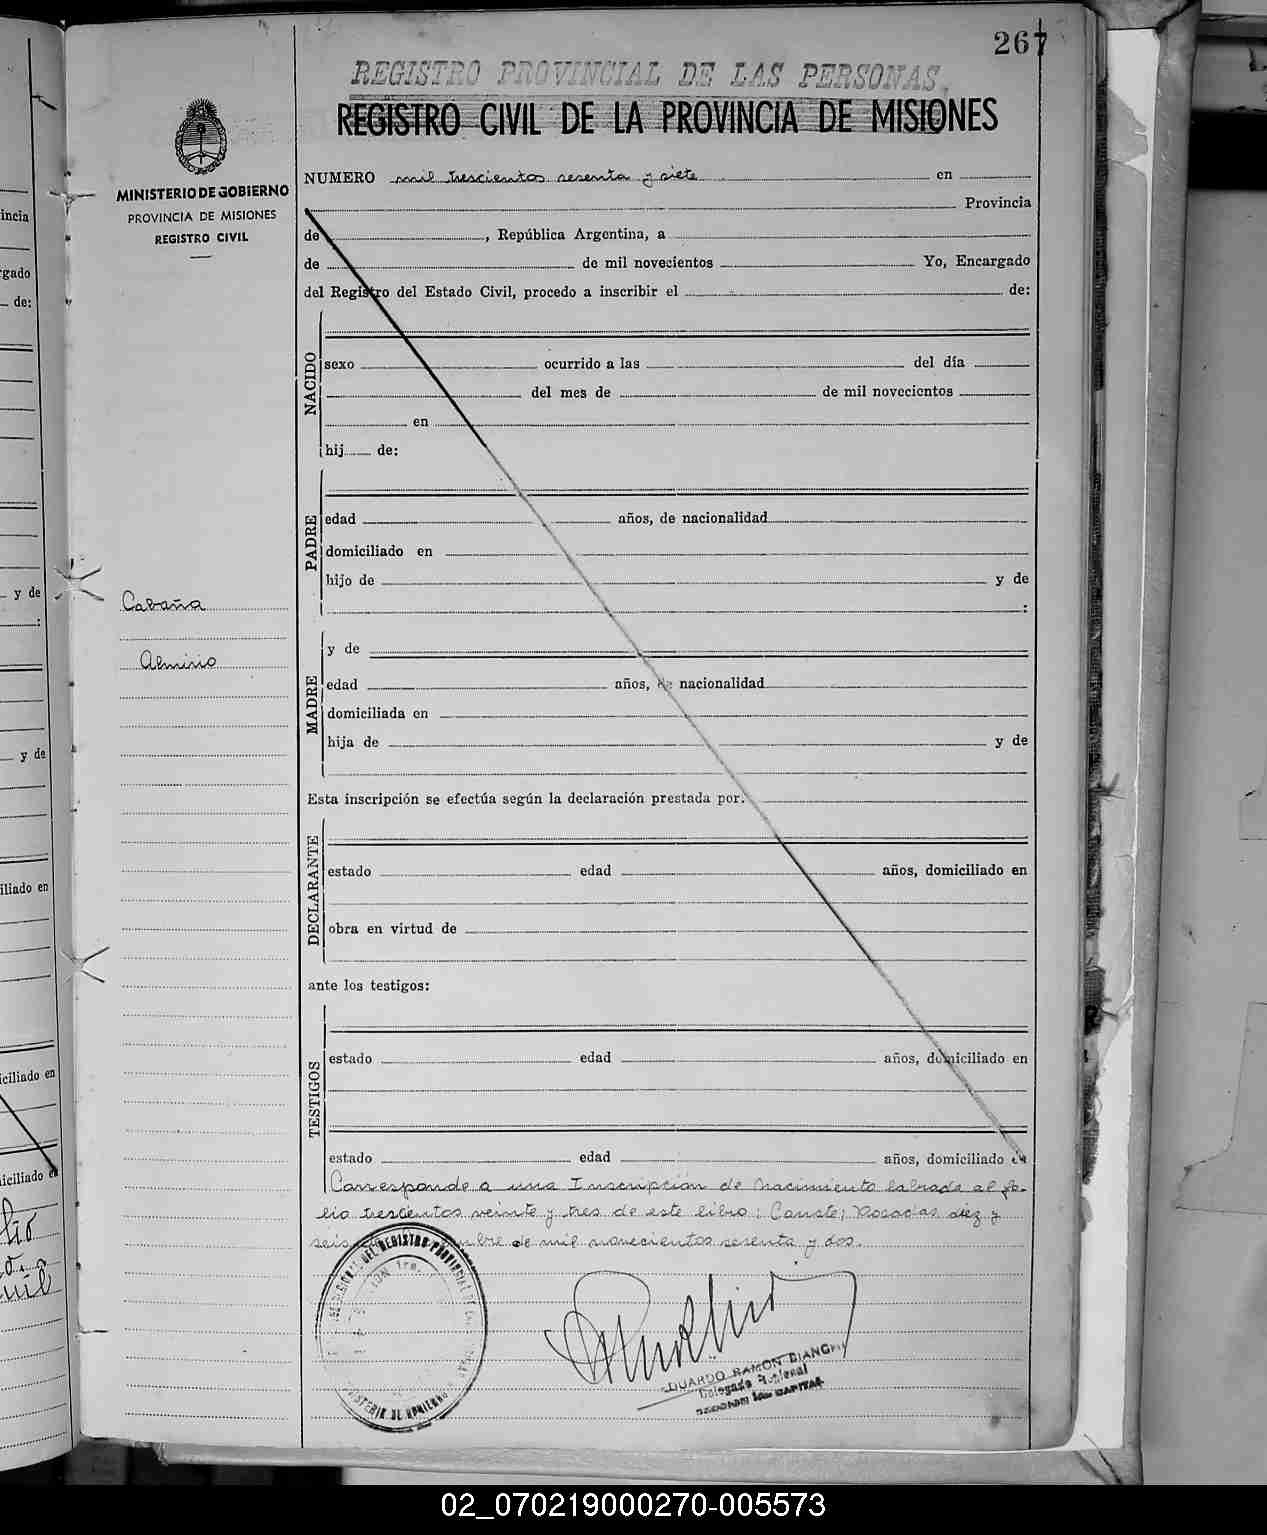 267
REGISTRO PROVINCIAL DE LAS PERSONAS.
REGISTRO CIVIL DE LA PROVINCIA DE MISIONES
MINISTERIO DE GOBIERNO
PROVINCIA DE MISIONES
REGISTRO CIVIL
NUMERO mil trescientos sesenta y siete en
Provincia
de , República Argentina, a
de de mil novecientos Yo, Encargado
del Registro del Estado Civil, procedo a inscribir el de:
NACIDO
sexo ocurrido a las del día
del mes de de mil novecientos
en
hij de:
PADRE
edad años, de nacionalidad
domiciliado en
hijo de y de
:
Cabaña
Almirio
MADRE
y de
edad años, de nacionalidad
domiciliada en
hija de y de
Esta inscripción se efectúa según la declaración prestada por:
DECLARANTE
estado edad años, domiciliado en
obra en virtud de
ante los testigos:
TESTIGOS
estado edad años, domiciliado en
estado edad años, domiciliado en
Corresponde a una Inscripción de Nacimiento labrada al fo-
lio trescientos veinte y tres de este libro: Conste; Posadas diez y
seis mbre de mil novecientos sesenta y dos.
DEL REGISTRO PROVINCIAL DE
MINISTERIO DE GOBIERNO
EDUARDO RAMON BIANCHI
Delegado Regional
CAPITAL
incia
rgado
de:
y de
:
y de
iliado en
iciliado en
iciliado en
02_070219000270-005573